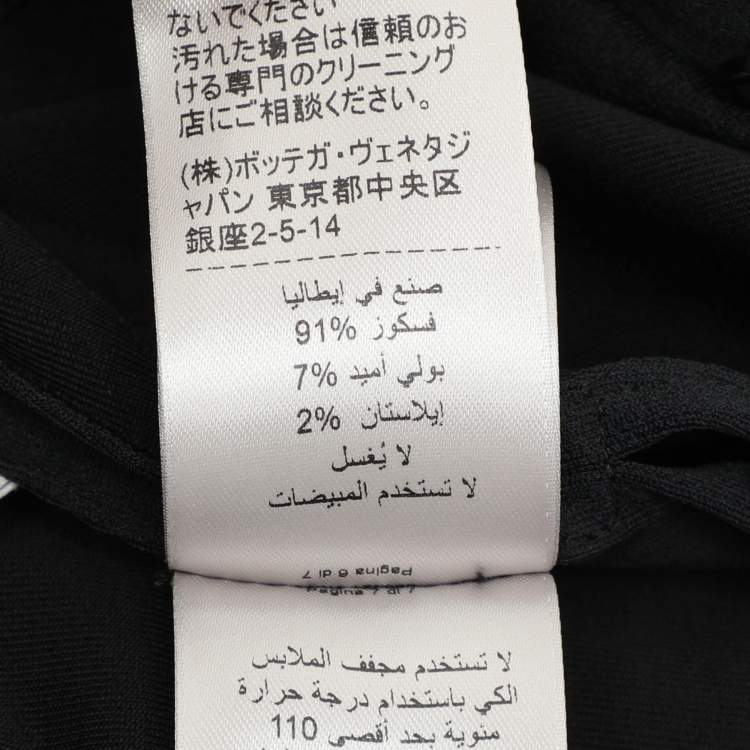 ないでください
汚れた場合は信頼のお
ける専門のクリーニング
店にご相談ください。
(株)ボッテガ・ヴェネタジ
ャパン 東京都中央区
銀座2-5-14
صنع في إيطاليا
فسكوز 91%
بولي أميد 7%
إيلاستان 2%
لا يُغسل
لا تستخدم المبيضات
Pagina 6 di 7
Pagina 7 di 7
لا تستخدم مجفف الملابس
الكي باستخدام درجة حرارة
مئوية بحد أقصى 110